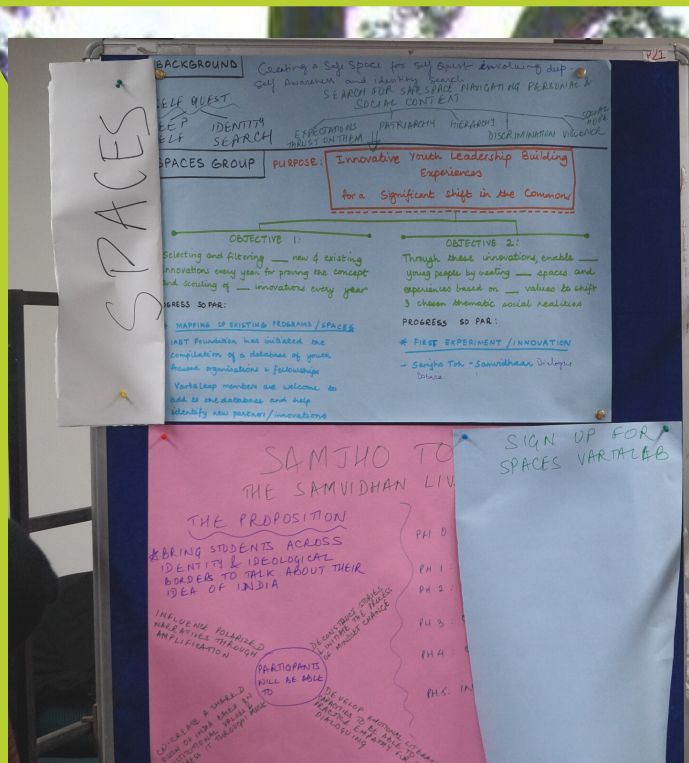 P/1
SPACES
BACKGROUND
Creating a Safe Space for Self Quest involving deep
Self Awareness and identity search
SEARCH FOR SAFE SPACE NAVIGATING PERSONAL &
SOCIAL CONTEXT
SELF QUEST
IDENTITY
SEARCH
EXPECTATIONS
THRUST ON THEM
PATRIARCHY
HIERARCHY
DISCRIMINATION
VIOLENCE
SPACES GROUP
PURPOSE:
Innovative Youth Leadership Building
Experiences
for a Significant Shift in the Common
OBJECTIVE 1:
Selecting and filtering __ new & existing
innovations every year for proving the concept
and scaling of __ innovations every year
GRESS SO FAR:
MAPPING OF EXISTING PROGRAMS / SPACES
Foundation has initiated the
compilation of a database of youth
focused organisations & fellowships
VartaLeap members are welcome to
add to the database and help
identify new partners/innovations
OBJECTIVE 2:
Through these innovations, enable __
young people by creating __ spaces and
experiences based on __ values to shift
3 chosen thematic social realities
PROGRESS SO FAR:
* FIRST EXPERIMENT / INNOVATION
- Samjho Toh - Samvidhaan Dialogue
SAMJHO TO
THE SAMVIDHAN LIV
THE PROPOSITION
* BRING STUDENTS ACROSS
IDENTITY & IDEOLOGICAL
BORDERS TO TALK ABOUT THEIR
IDEA OF INDIA
INFLUENCE POLARIZED
NARRATIVES THROUGH
AMPLIFICATION
DECONSTRUCT
& INITIATE THE PROCESS
OF MINDSET CHANGE
PARTICIPANTS
WILL BE ABLE
TO
CO-CREATE A SHARED
OF INDIA BASED ON
VALUES &
IT THROUGH
DEVELOP EMOTIONAL
CAPACITIES TO BE ABLE TO
PRACTICE EMPATHY FOR
DIALOGUING
PH 0
PH 1
PH 2 :
PH 3 :
PH 4 :
PH 5: IN
SIGN UP FOR
SPACES VARTALAB